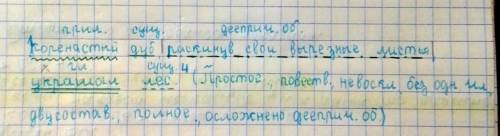 прил. сущ. дееприч. об.
Коренастый дуб|раскинув свои вырезные листья|
гл. сущ.
украшал лес (Простое, повеств, невоскл, без одн чл,
двусостав., полное, осложнено дееприч. об)